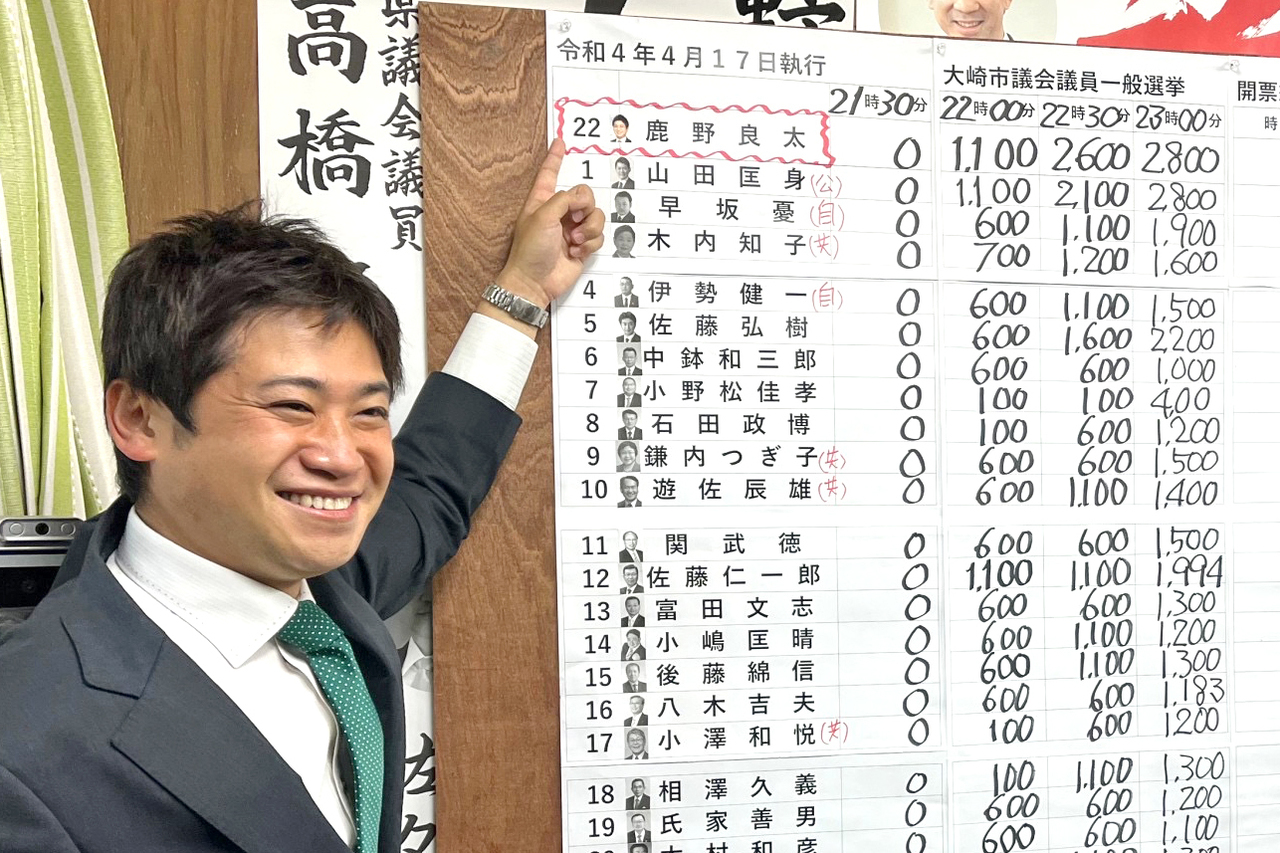 県議会議員
高橋
左々
令和4年4月17日執行
大崎市議会議員一般選挙
開票
21時30分 22時00分 22時30分 23時00分 時
22 鹿野良太 0 1,100 2,600 2,800
1 山田匡身(公) 0 1,100 2,100 2,800
早坂憂(自) 0 600 1,100 1,900
木内知子(共) 0 700 1,200 1,600
4 伊勢健一(自) 0 600 1,100 1,500
5 佐藤弘樹 0 600 1,600 2200
6 中鉢和三郎 0 600 600 1,000
7 小野松佳孝 0 100 100 400
8 石田政博 0 100 600 1,200
9 鎌内つぎ子(共) 0 600 600 1,500
10 遊佐辰雄(共) 0 600 1,100 1,400
11 関武徳 0 600 600 1,500
12 佐藤仁一郎 0 1,100 1,100 1,994
13 富田文志 0 600 600 1,300
14 小嶋匡晴 0 600 1,100 1,200
15 後藤綿信 0 600 1,100 1,300
16 八木吉夫 0 600 600 1,183
17 小澤和悦(共) 0 100 600 1200
18 相澤久義 0 100 1,100 1,300
19 氏家善男 0 600 600 1,200
村和彦 0 600 1,100